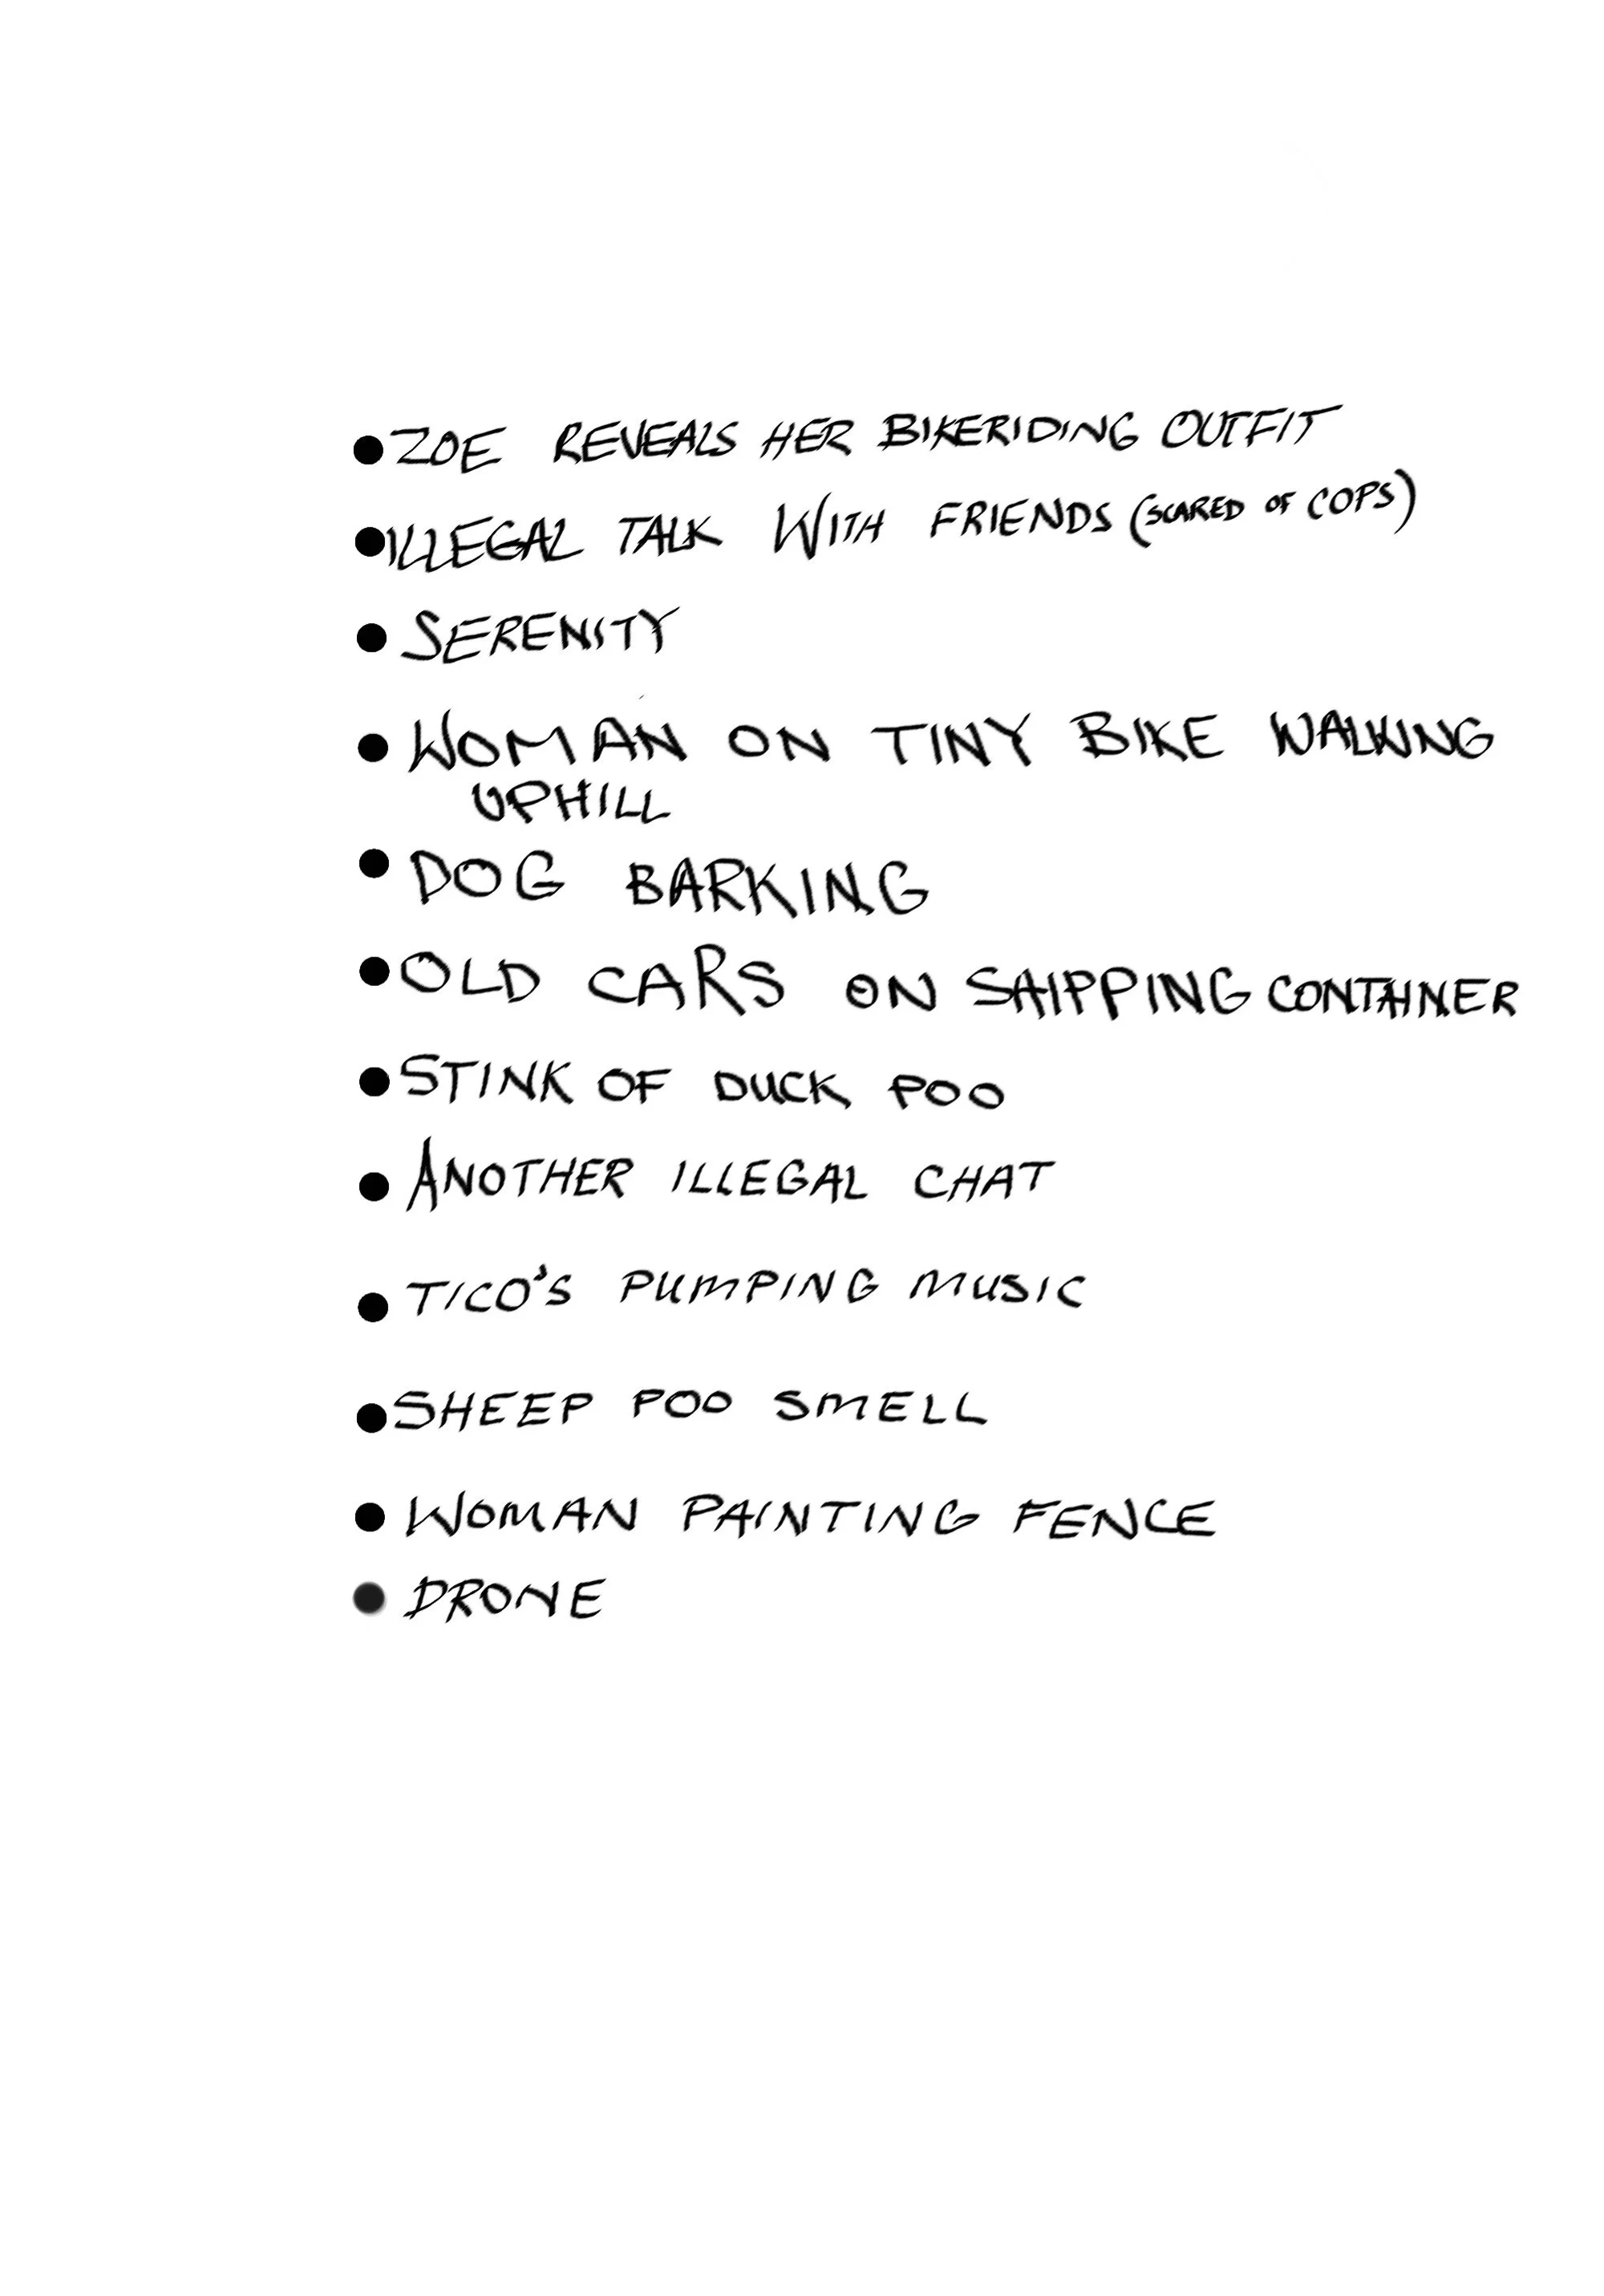 ● ZOE REVEALS HER BIKERIDING OUTFIT
● ILLEGAL TALK WITH FRIENDS (SCARED OF COPS)
● SERENITY
● WOMAN ON TINY BIKE WALKING
UPHILL
● DOG BARKING
● OLD CARS ON SHIPPING CONTAINER
● STINK OF DUCK POO
● ANOTHER ILLEGAL CHAT
● TICO'S PUMPING MUSIC
● SHEEP POO SMELL
● WOMAN PAINTING FENCE
● DRONE